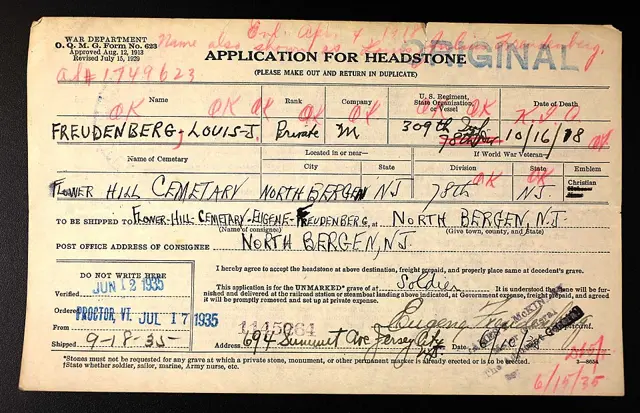 WAR DEPARTMENT
O. Q. M. G. Form No. 623
Approved Aug. 12, 1913
Revised July 15, 1929
Enl. Apr. 4, 1918
Name also shown as Louis Julius Freudenberg.
ORIGINAL
APPLICATION FOR HEADSTONE
(PLEASE MAKE OUT AND RETURN IN DUPLICATE)
1749623
Name Rank Company U. S. Regiment, State Organization, or Vessel Date of Death
OK OK OK OK OK OK K I A
FREUDENBERG, LOUIS-J. Private M 309th Inf 10/16/18
Name of Cemetary Located in or near— If World War Veteran—
City State Division State Emblem
OK OK
FLOWER HILL CEMETARY NORTH BERGEN NJ 78th NJ Christian
TO BE SHIPPED TO FLOWER-HILL-CEMETARY-EUGENE-FREUDENBERG, at NORTH BERGEN, N.J.
(Name of consignee) (Give town, county, and State)
POST OFFICE ADDRESS OF CONSIGNEE NORTH BERGEN, N.J.
DO NOT WRITE HERE
I hereby agree to accept the headstone at above destination, freight prepaid, and properly place same at decedent's grave.
Verified JUN 12 1935
This application is for the UNMARKED* grave of a† Soldier It is understood the stone will be furnished and delivered at the railroad station or steamboat landing above indicated, at Government expense, freight prepaid, and agree it will be promptly removed and set up at private expense.
Ordered PROCTOR, VT. JUL 17 1935
From
1445064
Eugene Freudenberg
Shipped 9-18-35-
694 Summit Ave Jersey City
Date
3—8654
*Stones must not be requested for any grave at which a private stone, monument, or other permanent marker is already erected or is to be erected.
†State whether soldier, sailor, marine, Army nurse, etc.
6/15/35